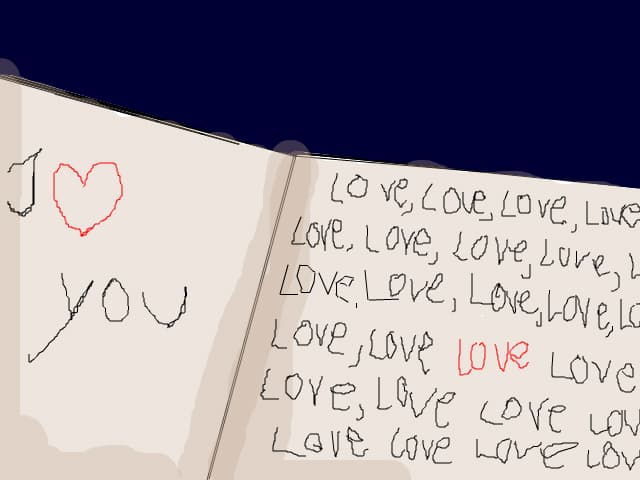 I ♥
you
Love, Love, Love, Love
Love, Love, Love, Love,
Love, Love, Love, Love,
Love, Love love Love
Love, Love Love
Love Love Love